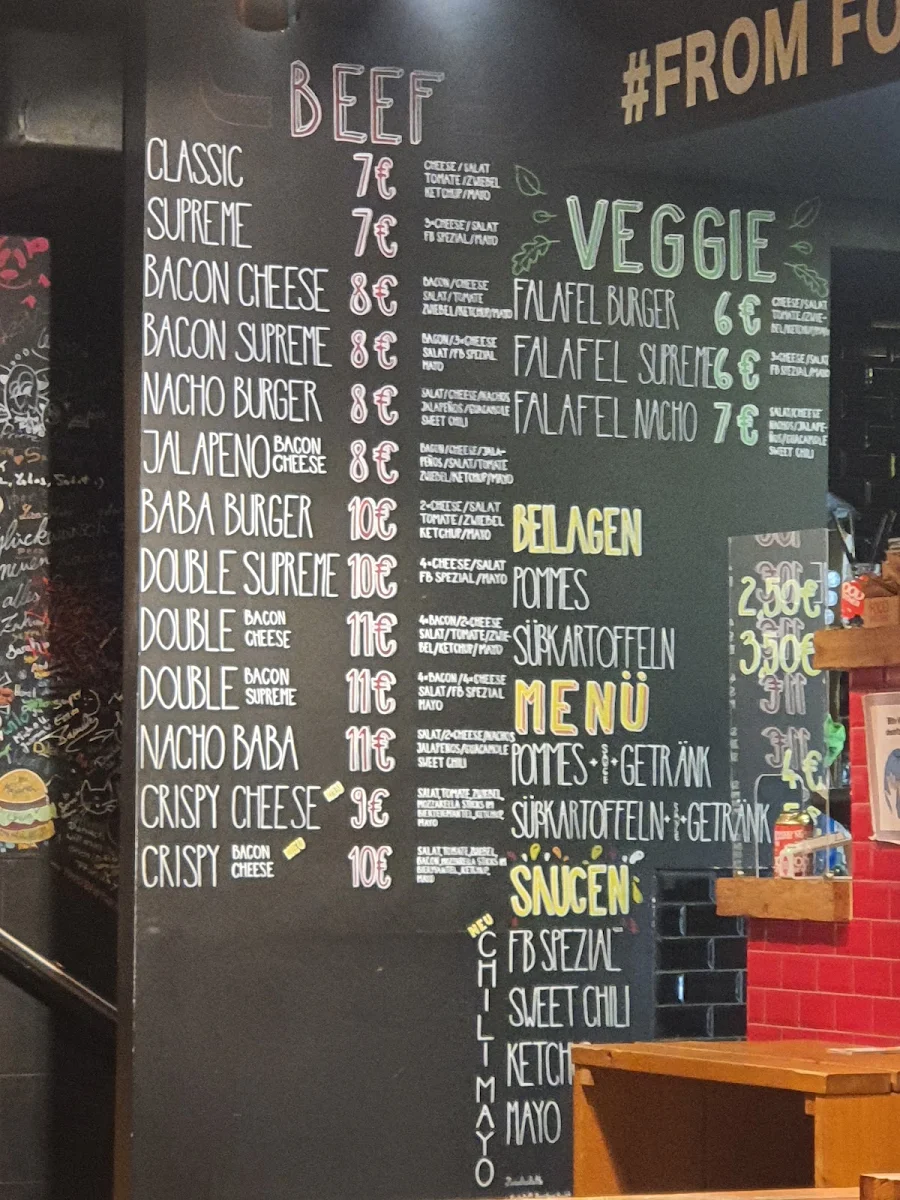 #FROM FO
BEEF
CLASSIC 7€ CHEESE/SALAT
TOMATE/ZWIEBEL
KETCHUP/MAYO
SUPREME 7€ 3×CHEESE/SALAT
FB SPEZIAL/MAYO
BACON CHEESE 8€ BACON/CHEESE
SALAT/TOMATE
ZWIEBEL/KETCHUP/MAYO
BACON SUPREME 8€ BACON/3×CHEESE
SALAT/FB SPEZIAL
MAYO
NACHO BURGER 8€ SALAT/CHEESE/NACHOS
JALAPEÑOS/GUACAMOLE
SWEET CHILI
JALAPENO BACON CHEESE 8€ BACON/CHEESE/JALA-
PEÑOS/SALAT/TOMATE
ZWIEBEL/KETCHUP/MAYO
BABA BURGER 10€ 2×CHEESE/SALAT
TOMATE/ZWIEBEL
KETCHUP/MAYO
DOUBLE SUPREME 10€ 4×CHEESE/SALAT
FB SPEZIAL/MAYO
DOUBLE BACON CHEESE 11€ 4×BACON/2×CHEESE
SALAT/TOMATE/ZWIE-
BEL/KETCHUP/MAYO
DOUBLE BACON SUPREME 11€ 4×BACON/4×CHEESE
SALAT/FB SPEZIAL
MAYO
NACHO BABA 11€ SALAT/2×CHEESE/NACHOS
JALAPEÑOS/GUACAMOLE
SWEET CHILI
CRISPY CHEESE NEU 9€ SALAT, TOMATE, ZWIEBEL,
MOZZARELLA STICKS IM
BIERTEIGMANTEL, KETCHUP,
MAYO
CRISPY BACON CHEESE NEU 10€ SALAT, TOMATE, ZWIEBEL,
BACON, MOZZARELLA STICKS IM
KETCHUP,
MAYO
VEGGIE
FALAFEL BURGER 6€ CHEESE/SALAT
TOMATE/ZWIE-
BEL/KETCHUP/MAYO
FALAFEL SUPREME 6€ 3×CHEESE/SALAT
FB SPEZIAL/MAYO
FALAFEL NACHO 7€ SALAT/CHEESE
NACHOS/JALAPE-
ÑOS/GUACAMOLE
SWEET CHILI
BEILAGEN
POMMES 2,50€
SÜßKARTOFFELN 3,50€
MENÜ
POMMES + SAUCE + GETRÄNK 4€
SÜßKARTOFFELN + SAUCE + GETRÄNK
SAUCEN
FB SPEZIAL
SWEET CHILI
KETCH
MAYO
NEU
CHILI MAYO